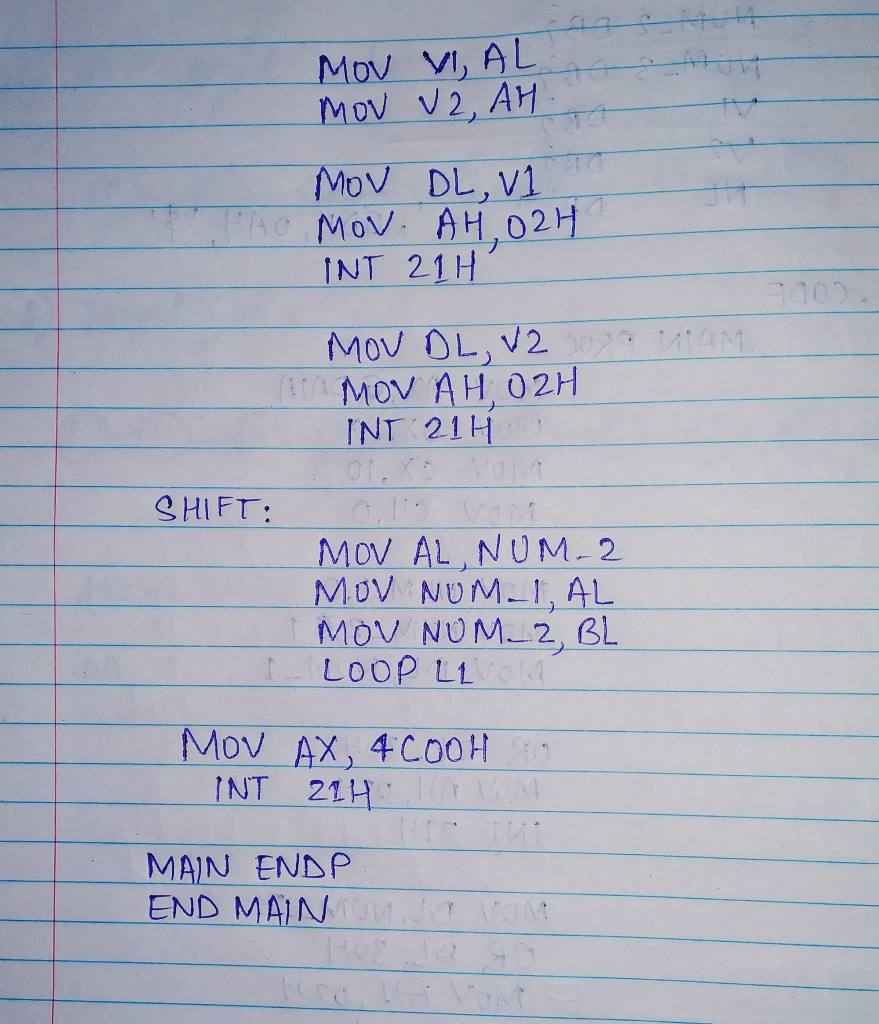 MOV V1, AL
MOV V2, AH
MOV DL, V1
MOV AH, 02H
INT 21H
MOV DL, V2
MOV AH, 02H
INT 21H
SHIFT:
MOV AL, NUM_2
MOV NUM_1, AL
MOV NUM_2, BL
LOOP L1
MOV AX, 4C00H
INT 21H
MAIN ENDP
END MAIN